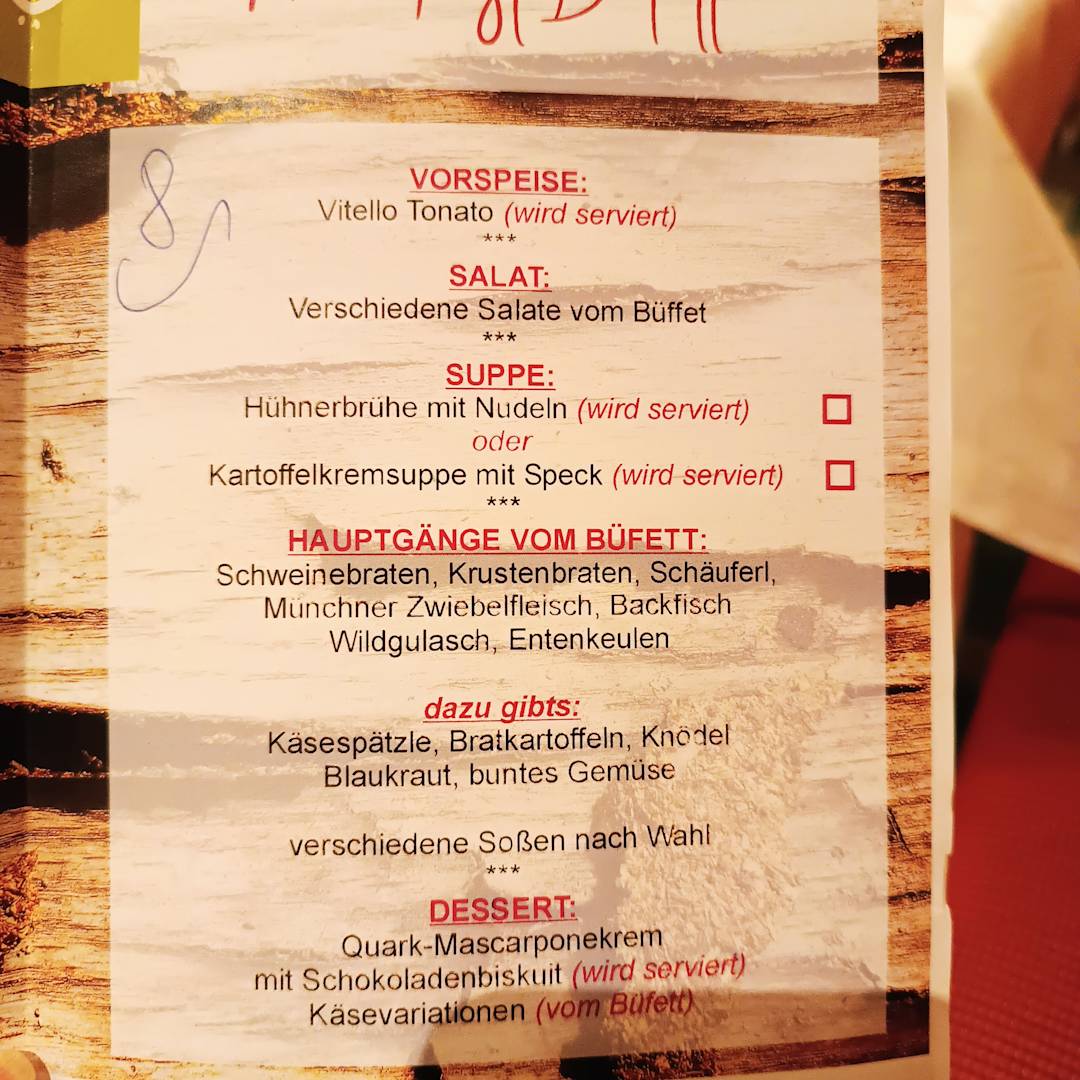 8
VORSPEISE:
Vitello Tonato (wird serviert)
***
SALAT:
Verschiedene Salate vom Büffet
***
SUPPE:
Hühnerbrühe mit Nudeln (wird serviert)
oder
Kartoffelkremsuppe mit Speck (wird serviert)
***
HAUPTGÄNGE VOM BÜFETT:
Schweinebraten, Krustenbraten, Schäuferl,
Münchner Zwiebelfleisch, Backfisch
Wildgulasch, Entenkeulen
dazu gibts:
Käsespätzle, Bratkartoffeln, Knödel
Blaukraut, buntes Gemüse
verschiedene Soßen nach Wahl
***
DESSERT:
Quark-Mascarponekrem
mit Schokoladenbiskuit (wird serviert)
Käsevariationen (vom Büfett)